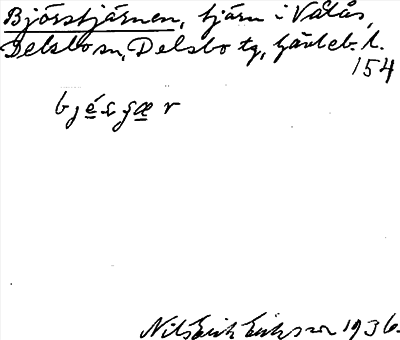 Björstjärnen, tjärn i Vålås,
Delsbo sn, Delsbo tg, Gävleb. l.
154
Nils Erik Eriksson 1936.